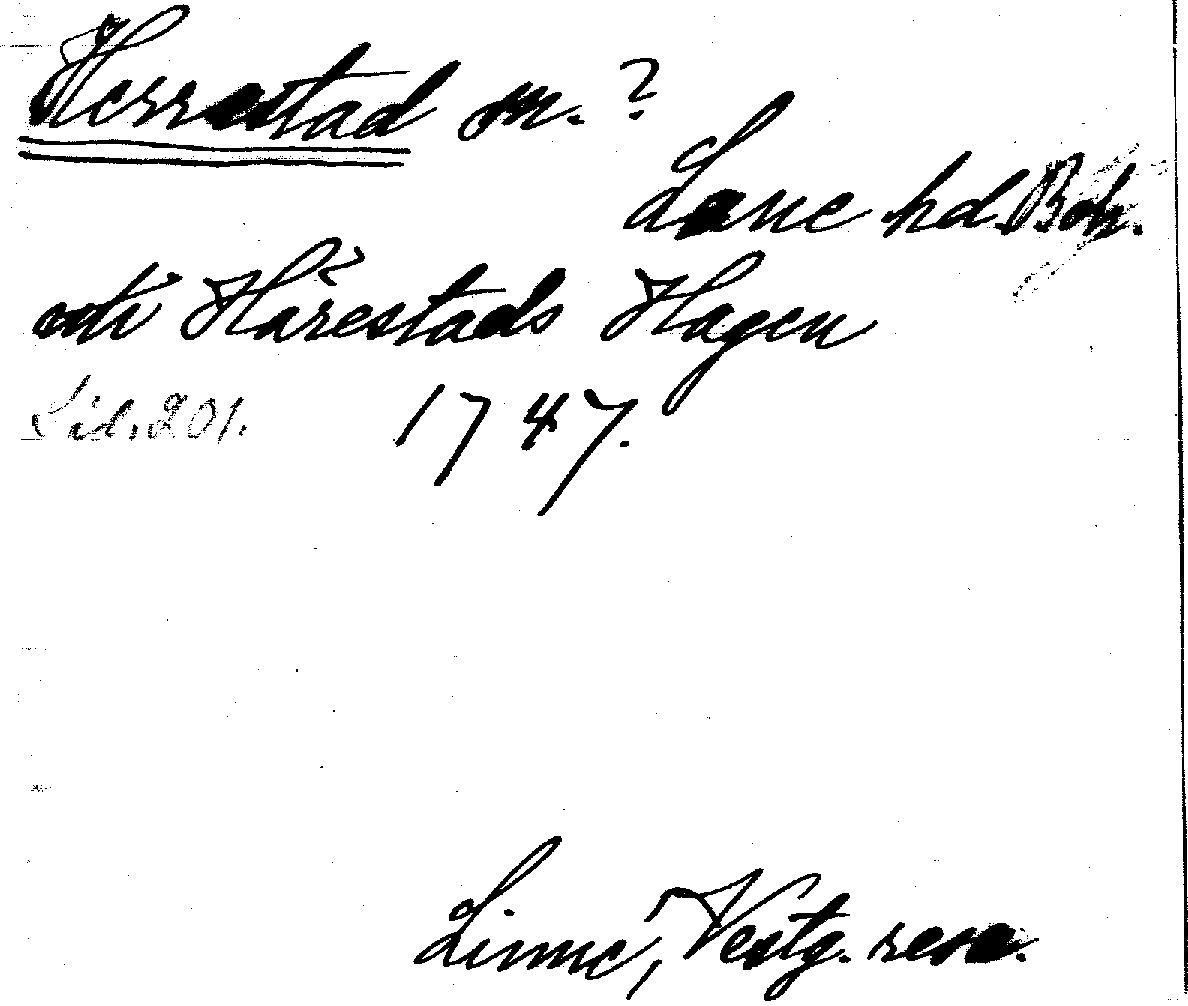 Herrestad sn.?
Lane hd. Boh.
uti Hårestads Hagen
Sid. 201. 1747.
Linné, Vestg. resa.